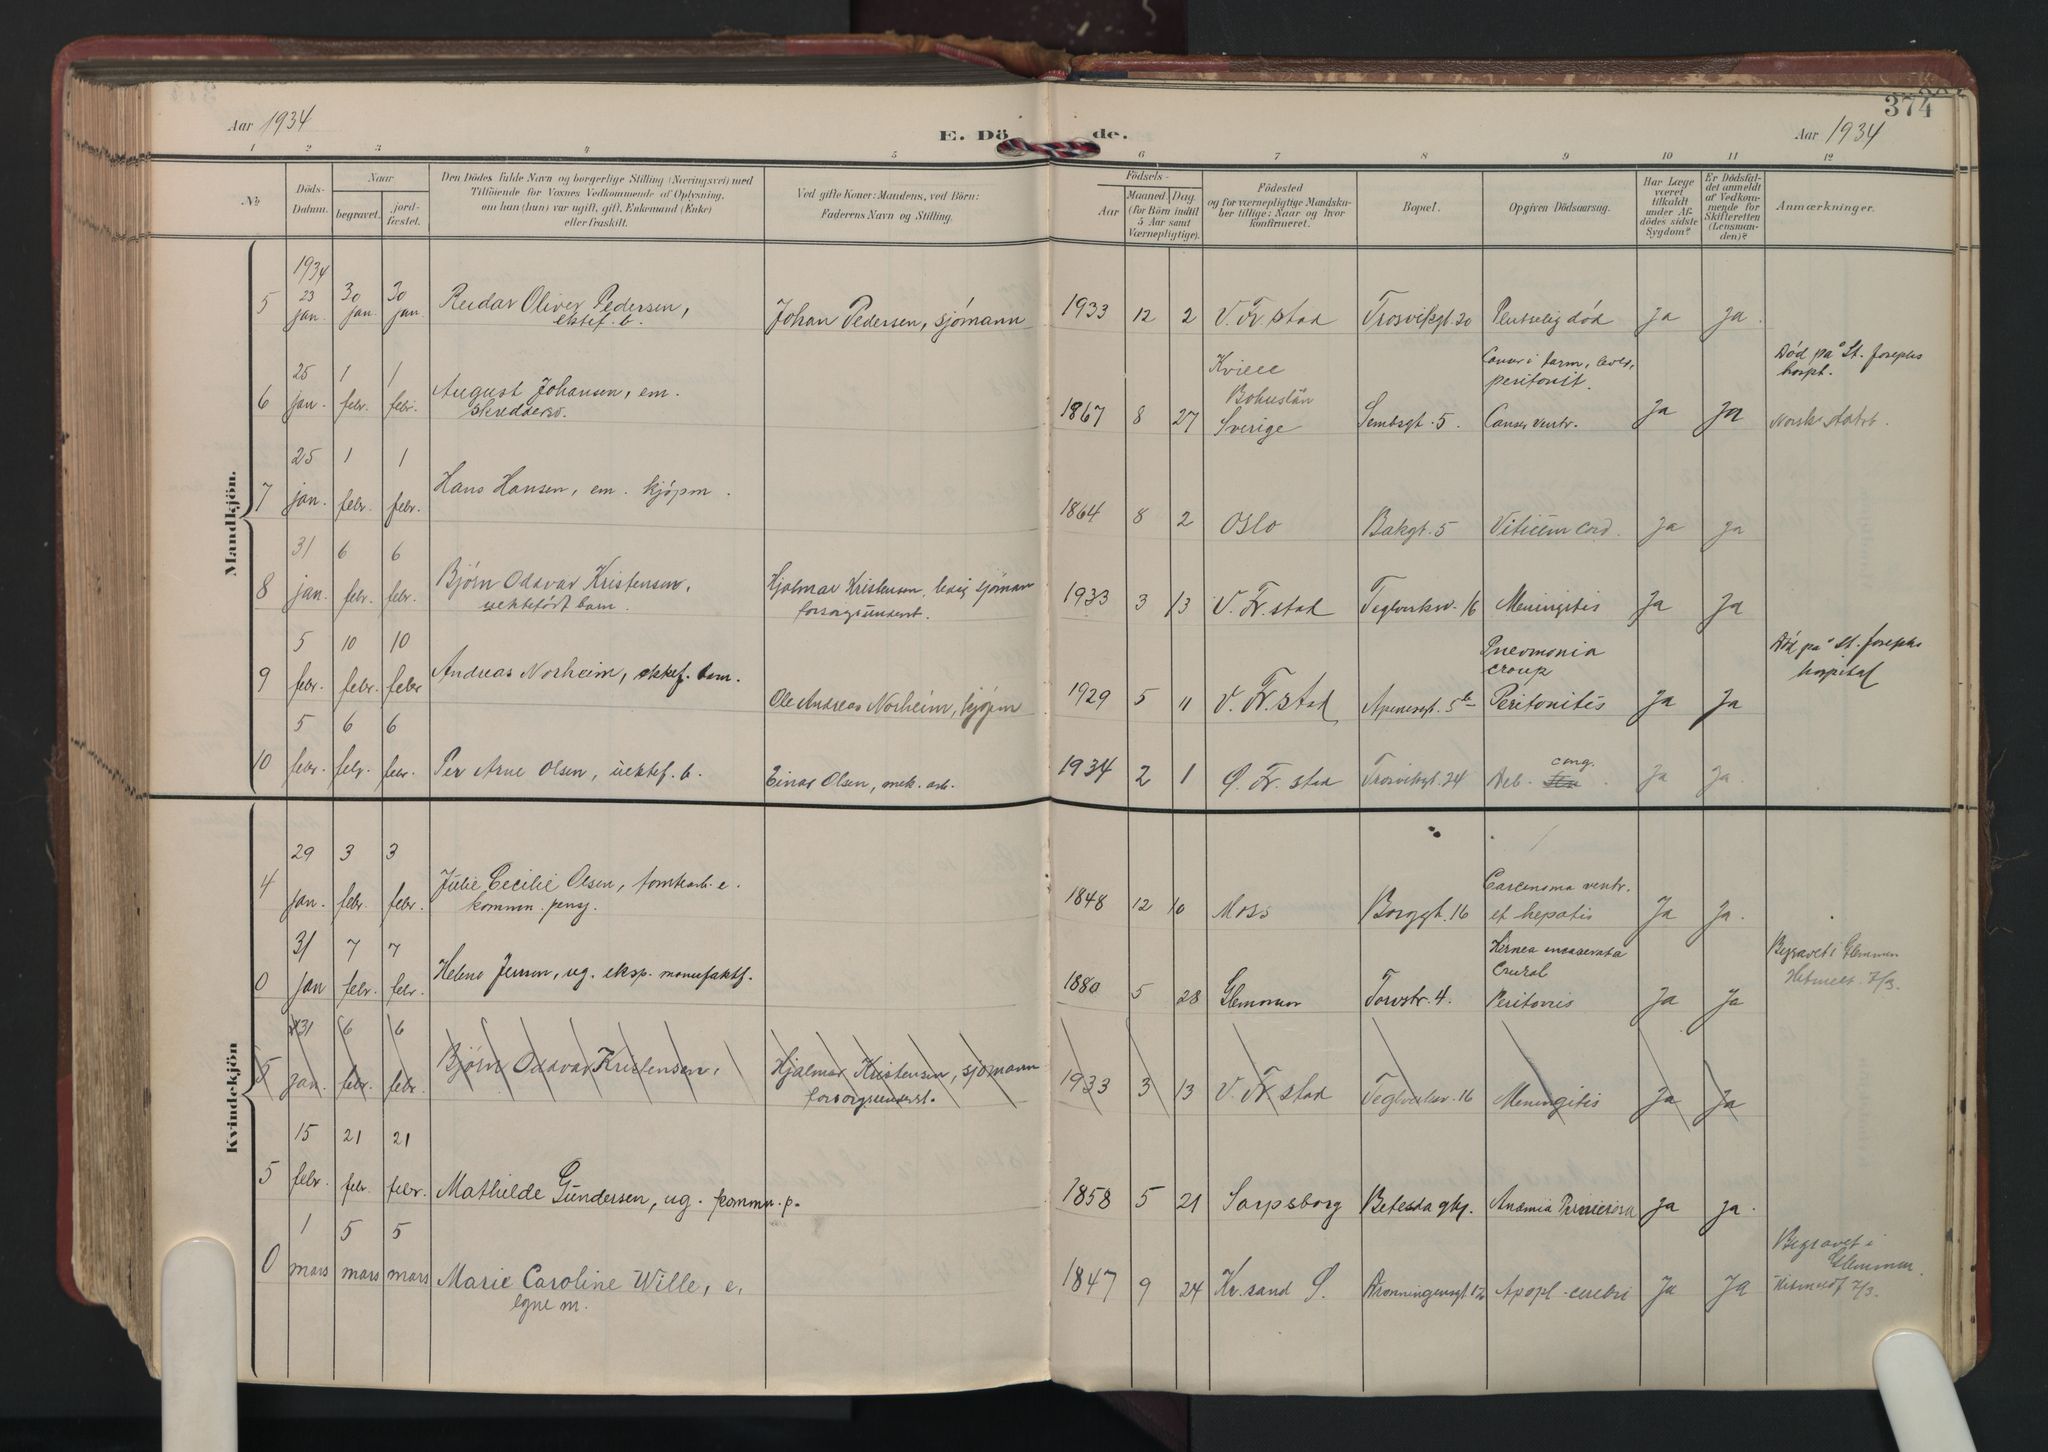 374
Aar 1934
E. Dö de.
Aar 1934
1 2 3 4 5 6 7 8 9 10 11 12
No
Döds-Datum.
Naar
begravet.
jord-fæstet.
Den Dödes fulde Navn og borgerlige Stilling (Næringsvei) med
Tilföiende for Voxnes Vedkommende af Oplysning,
om han (hun) var ugift, gift, Enkemand (Enke)
eller fraskilt.
Ved gifte Koner: Mandens, ved Börn:
Faderens Navn og Stilling.
Födsels-
Aar
Maaned Dag
(for Börn indtil
5 Aar samt
Værnepligtige).
Födested
og for værnepligtige Mandska-
ber tillige: Naar og hvor
konfirmeret.
Bopæl.
Opgiven Dödsaarsag.
Har Læge
været
tilkaldt
under Af-
dödes sidste
Sygdom?
Er Dödsfal-
det anmeldt
af Vedkom-
mende for
Skifteretten
(Lensman-
den)?
Anmærkninger.
Mandkjön.
1934
5 23 jan. 30 jan. 30 jan. Reidar Oliver Pedersen, ektef. b. Johan Pedersen, sjömann 1933 12 2 V. Fr.stad Trosvikgt. 20 Plutselig död Ja Ja.
6 25 jan. 1 febr. 1 febr. August Johansen, em. Skredderso. 1867 8 27 Bohuslän Sverige Sembsgt. 5. Canser i tarm, peritonit. Canser ventr. Ja Ja Död på St. Josephs hospt. Norsk statsb.
7 25 jan. 1 febr. 1 febr. Hans Hansen, em. kjöpm. 1864 8 2 Oslo Bakgt. 5 Vitium cord. Ja Ja
8 31 jan. 6 febr. 6 febr. Björn Oddvar Kristensen, uektefödt barn. Hjalmar Kristensen, ledig sjömann forsorgsunderst. 1933 3 13 V. Fr.stad Teglverksv. 16 Meningitis Ja Ja
9 5 febr. 10 febr. 10 febr Andreas Norheim, ektef. barn. Ole Andreas Norheim, kjöpm 1929 5 11 V. Fr.stad Apenesgt. 5b Pneomonia croup Peritonitis Ja Ja Död på St. Josephs hospital
10 5 febr. 6 febr. 6 febr. Per Arne Olsen, uektef. b. Einar Olsen, mek. arb. 1934 2 1 Ø. Fr.stad Trosvikgt. 24 Deb. cong. Ja Ja.
Kvindekjön
4 29 jan. 3 febr. 3 febr. Julie Cecilie Olsen, tomtearb. e. kommun. pensj. 1848 12 10 Moss Borggt. 16 Carcinoma ventr. et hepatis Ja Ja.
0 31 jan 7 febr. 7 febr. Helene Jensen, ug. eksp. manufaktf. 1880 5 28 Glemmen Torvstr. 4. Hernea incaserata crural Peritonis Ja Ja Begravet i Glemmen Hitmeldt 7/3.
5 31 jan. 6 febr. 6 febr. Björn Oddvar Kristensen, Hjalmar Kristensen, sjömann forsorgsunderst. 1933 3 13 V. Fr.stad Teglverksv. 16 Meningitis Ja Ja
5 15 febr. 21 febr. 21 febr. Mathilde Gundersen, ug. kommu. p. 1858 5 21 Sarpsborg Betesda ghj. Anæmia Perniciosa Ja Ja.
0 1 mars 5 mars 5 mars Marie Caroline Wille, e. egne m. 1847 9 24 Kr.sand S. Dronningensgt 12 Apopl. cerebri Ja Ja Begravet i Glemmen. Hitmeldt 7/3.